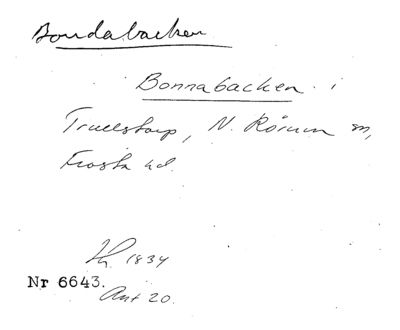 Bondabacken
Bonnabacken i
Truelstorp, N. Rörum sn,
Frosta hd.
1834
Nr 6643.
Ant 20.